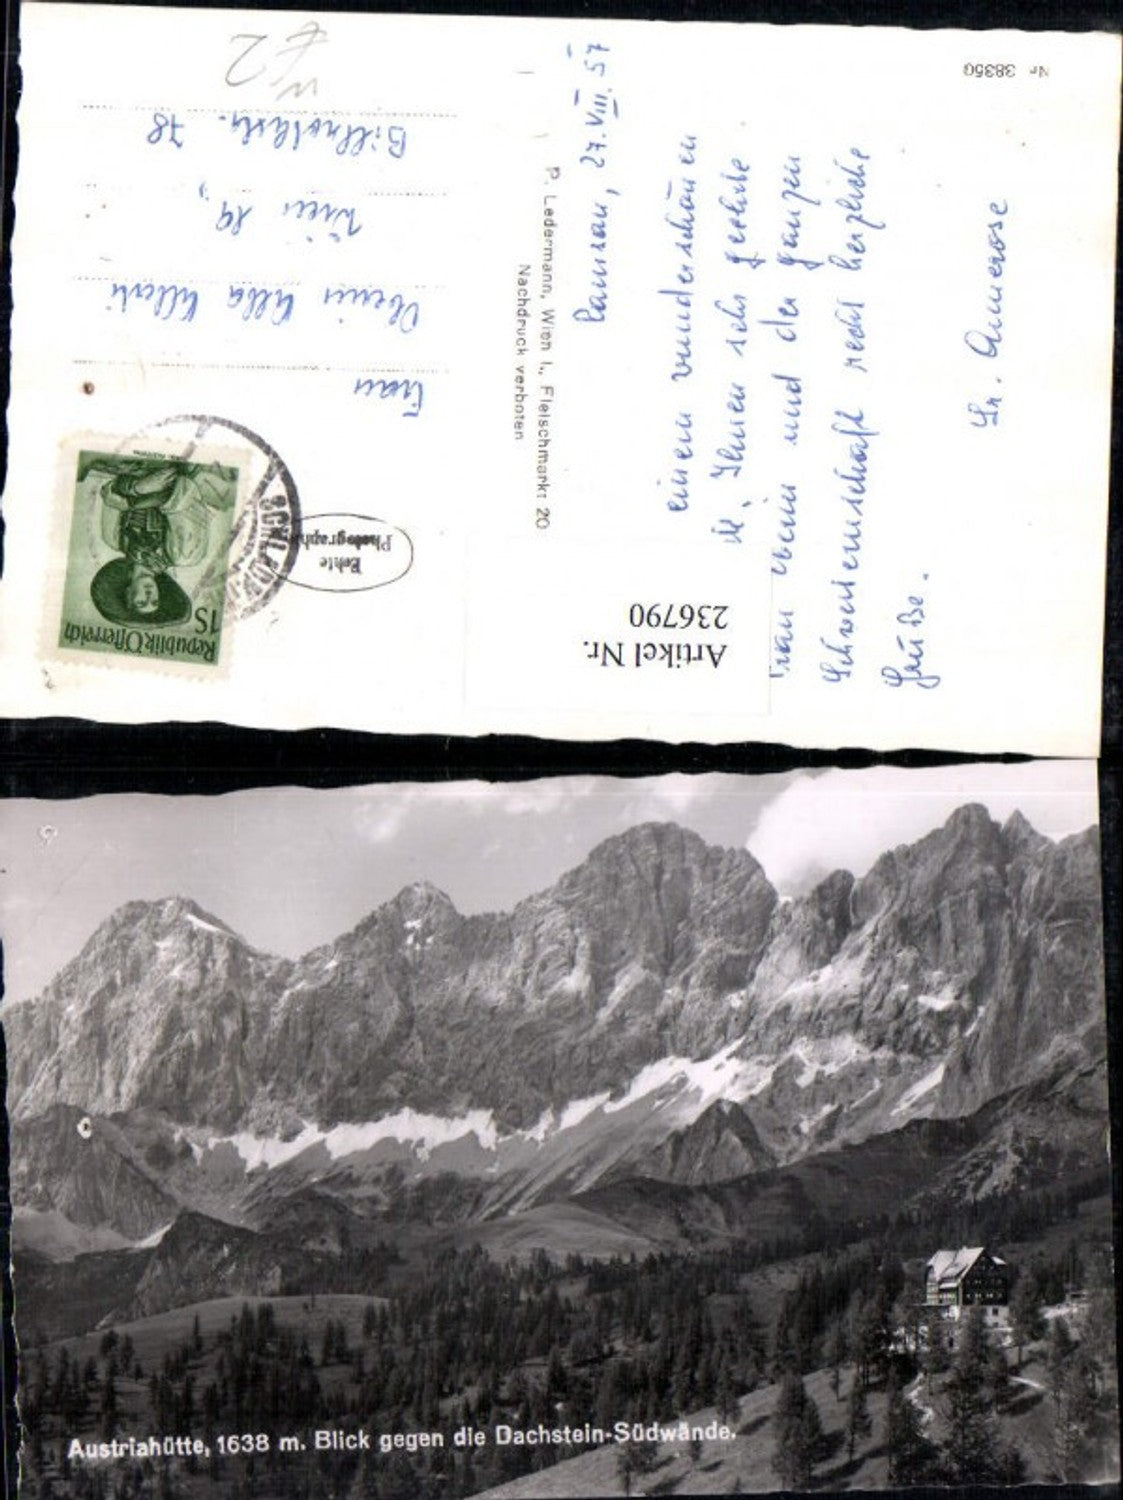 Nr 38350
Ramsau, 27.VIII.57
einen wunderschönen
Ihnen sehr geehrte
Frau und der ganzen
Schwesternschaft recht herzliche
Grüße.
Sr. Annerose
P. Ledermann, Wien I., Fleischmarkt 20
Nachdruck verboten
Echte
Photographie
Republik Österreich
1S
SCHLADM
Frau
Oberin Lilla
Wien 19,
Billrothstr. 78
Artikel Nr.
236790
Austriahütte, 1638 m. Blick gegen die Dachstein-Südwände.